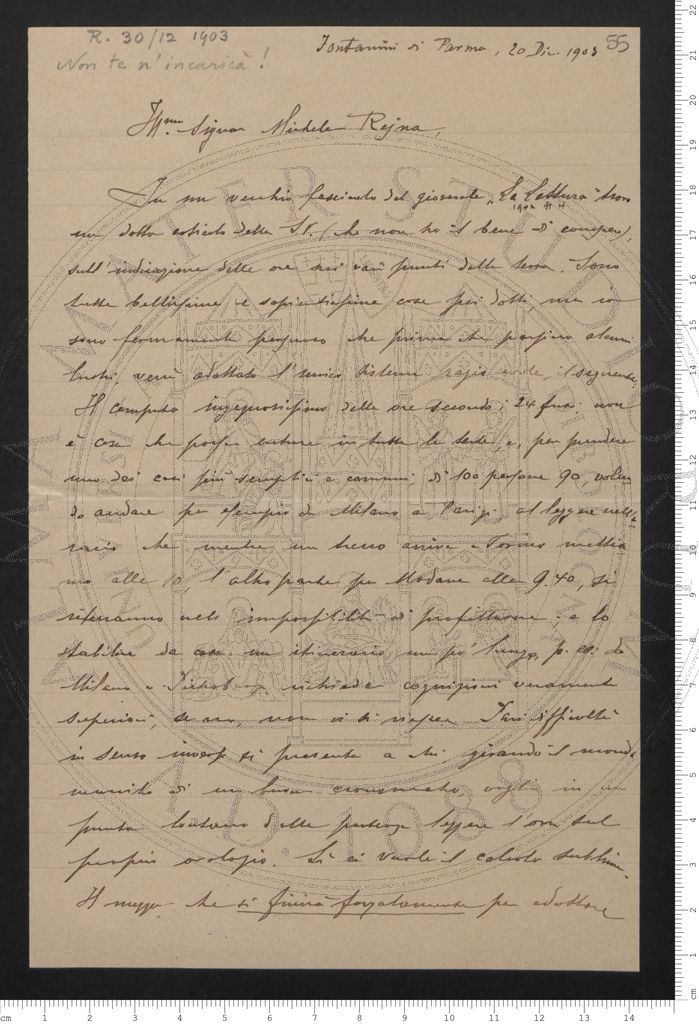 R. 30/12 1903
Non te n'incaricà!
Fontanini di Parma, 20 Dic. 1903
55
Ill.mo Signor Michele Rajna,
In un vecchio fascicolo del giornale "La Lettura" trovo
1902
un dotto articolo della S.V. (che non ho il bene di conoscere),
sull'indicazione delle ore nei vari punti della terra. Sono
tutte bellissime e sapientissime cose pei dotti, ma io
sono fermamente persuaso che prima che passino alcuni
lustri, verrà adottato l'unico sistema il seguente:
Il computo ingegnosissimo delle ore secondo i 24 fusi non
è cosa che possa entrare in tutte le teste, e, per prendere
uno dei casi più semplici e comuni, di 100 persone 90, volen
do andare per esempio da Milano a Parigi al leggere nell'
orario che mentre un treno arriva a Torino mettia
mo alle 10, l'altro parte per Modane alle 9.40, si
riterranno nell'impossibilità di proseguire: e lo
stabilire da casa un itinerario un po' lungo, p. es. da
Milano a richiede cognizioni veramente
superiori, se no, non vi si riesce. Pari difficoltà
in senso inverso si presenta a chi girando il mondo
munito di un buon cronometro voglia in un
punto lontano dalla partenza leggere l'ora sul
proprio orologio. Lì ci vuole il calcolo sublime.
Il mezzo che si finirà forzatamente per adottare
ALMA MATER STUDIORUM
A.D. 1088